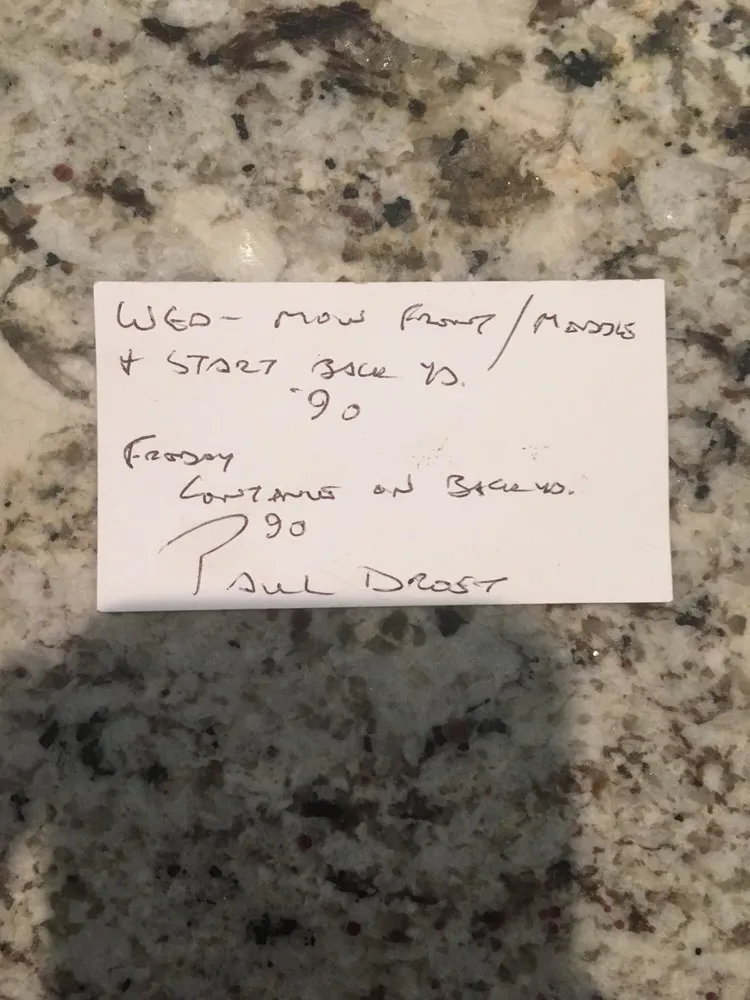 WED - MOW FRONT / MIDDLE
+ START BACK YD.
90
FRIDAY
CONTINUE ON BACK YD.
90
PAUL DROST